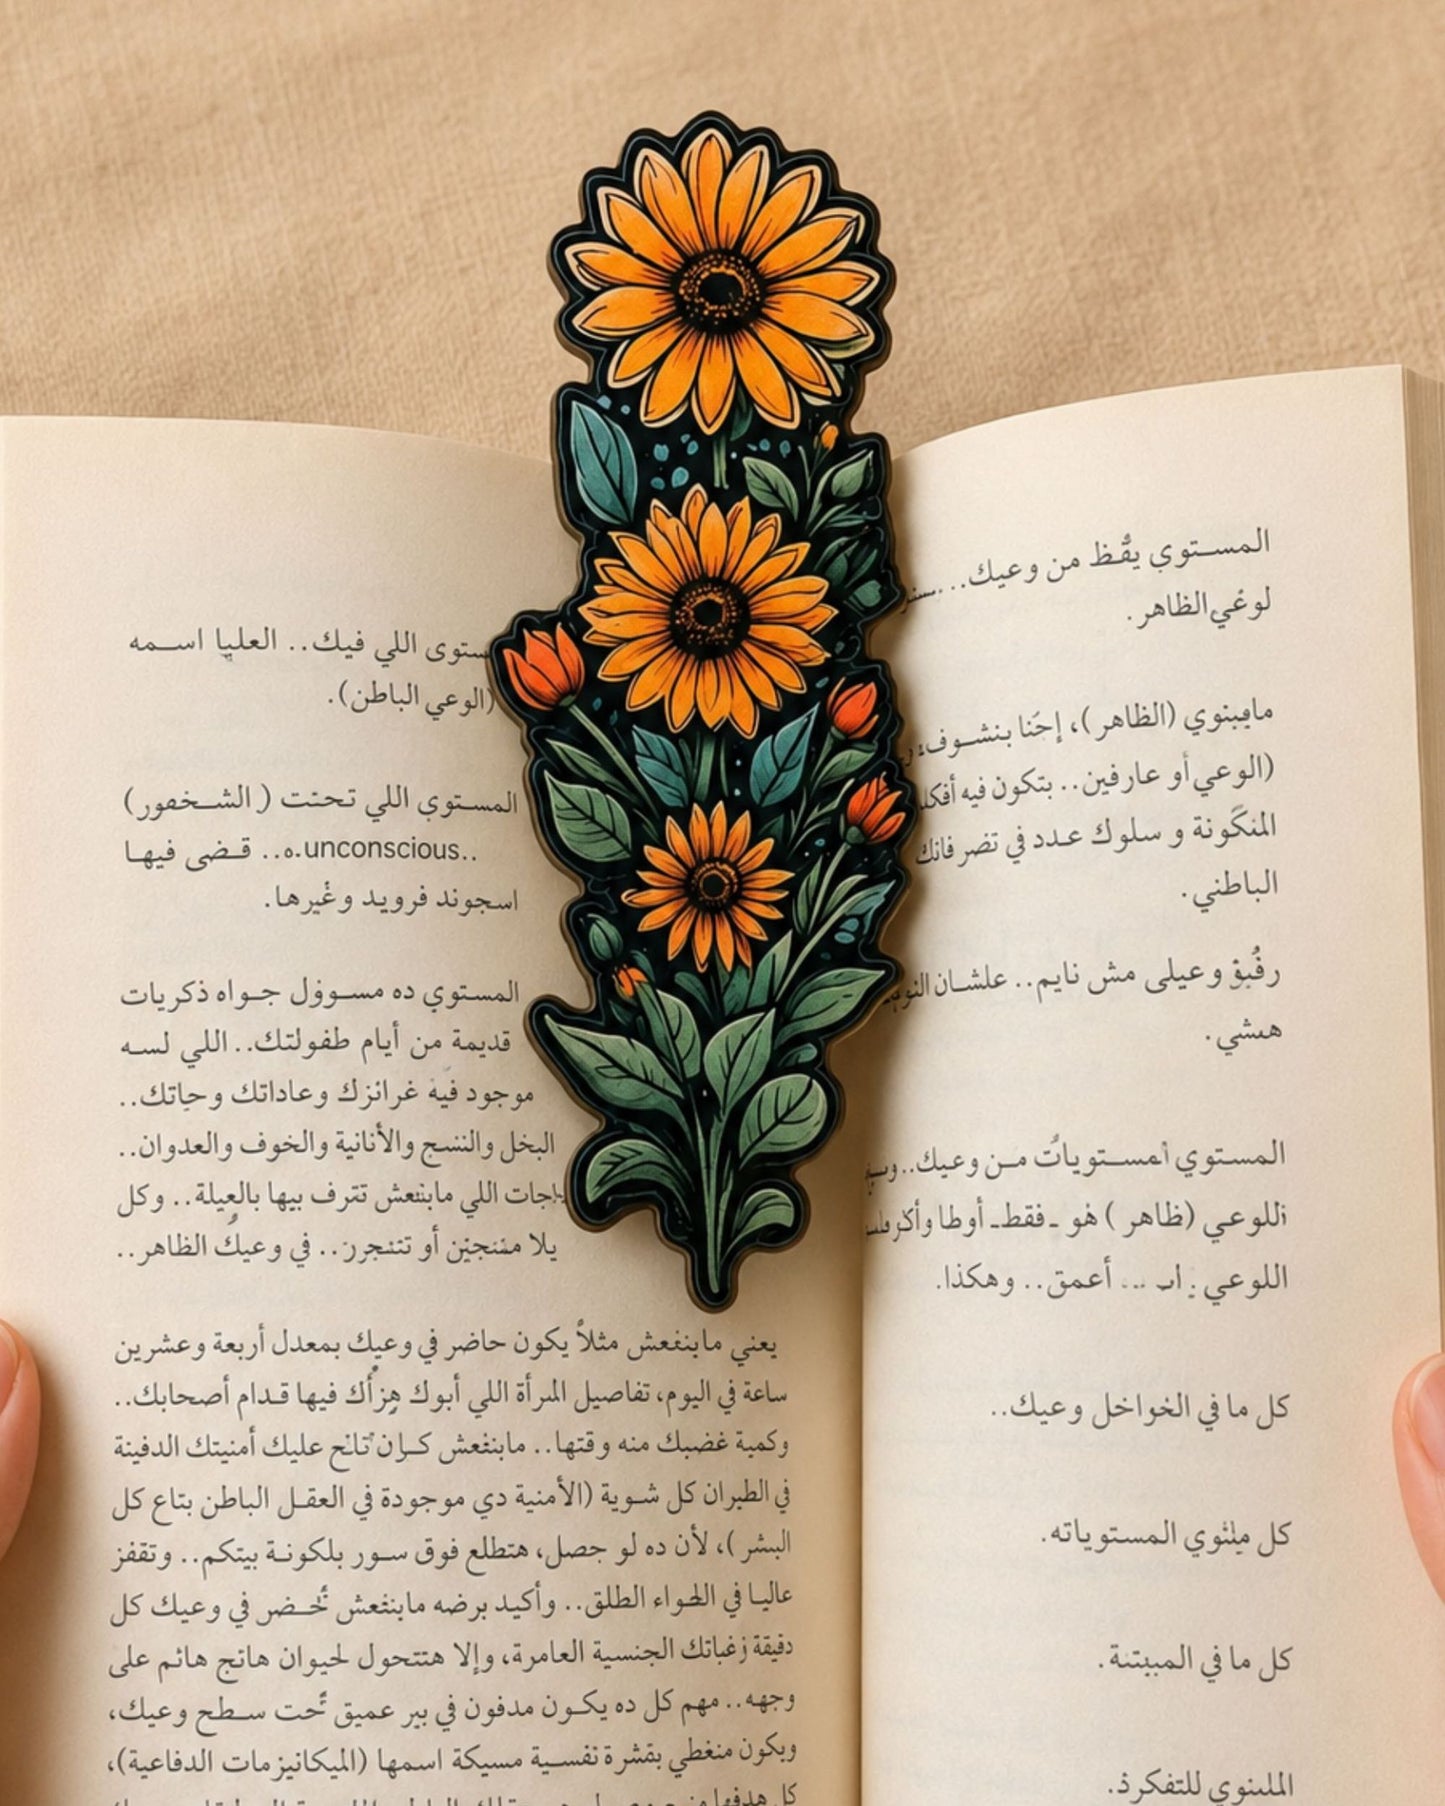 المستوي يقظ من وعيك..
لوغي الظاهر.
مايبنوي (الظاهر)، إحنا بنشوف
(الوعي أو عارفين.. بتكون فيه
المنكونة و سلوك عدد في تضر فانك
الباطني.
رفبق وعيلى مش نايم.. علشان
همشي.
المستوي أمستويات من وعيك..
اللوعي (ظاهر) هو - فقط - أوطا
اللوعي أعمق.. وهكذا.
كل ما في الخواخل وعيك..
كل ملنوي المستوياته.
كل ما في المبيتنة.
الملبنوي للتفكرذ.
ستوى اللي فيك.. العليا اسمه
(الوعي الباطن).
المستوي اللي تحتت (الشخفور)
unconscious.. قضى فيها
اسجوند فرويد وغيرها.
المستوي ده مسوول جواه ذكريات
قديمة من أيام طفولتك.. اللي لسه
موجود فيه غرانزك وعاداتك وحياتك..
البخل والننسج والأنانية والخوف والعدوان..
اللي مابننعش تترف بيها بالعيلة.. وكل
يلا أو في وعيك الظاهر..
يعني مابنفعش مثلاً يكون حاضر في وعيك بمعدل أربعة وعشرين
ساعة في اليوم، تفاصيل المرأة اللي أبوك هزأك فيها قدام أصحابك..
وكمية غضبك منه وقتها.. مابنفعش كان عليك أمنيتك الدفينة
في الطيران كل شوية (الأمنية دي موجودة في العقل الباطن بتاع كل
البشر)، لأن ده لو حصل، هتطلع فوق سور بلكونة بيتكم.. وتقفز
عاليا في الهواء الطلق.. وأكيد برضه مابنفعش تحضر في وعيك كل
دقيقة زغباتك الجنسية العامرة، وإلا هتتحول لحيوان هانج هائم على
وجهه.. مهم كل ده يكون مدفون في بير عميق تحت سطح وعيك،
وبكون منغطي بقشرة نفسية مسيكة اسمها (الميكانيزمات الدفاعية)،
كل هدفها